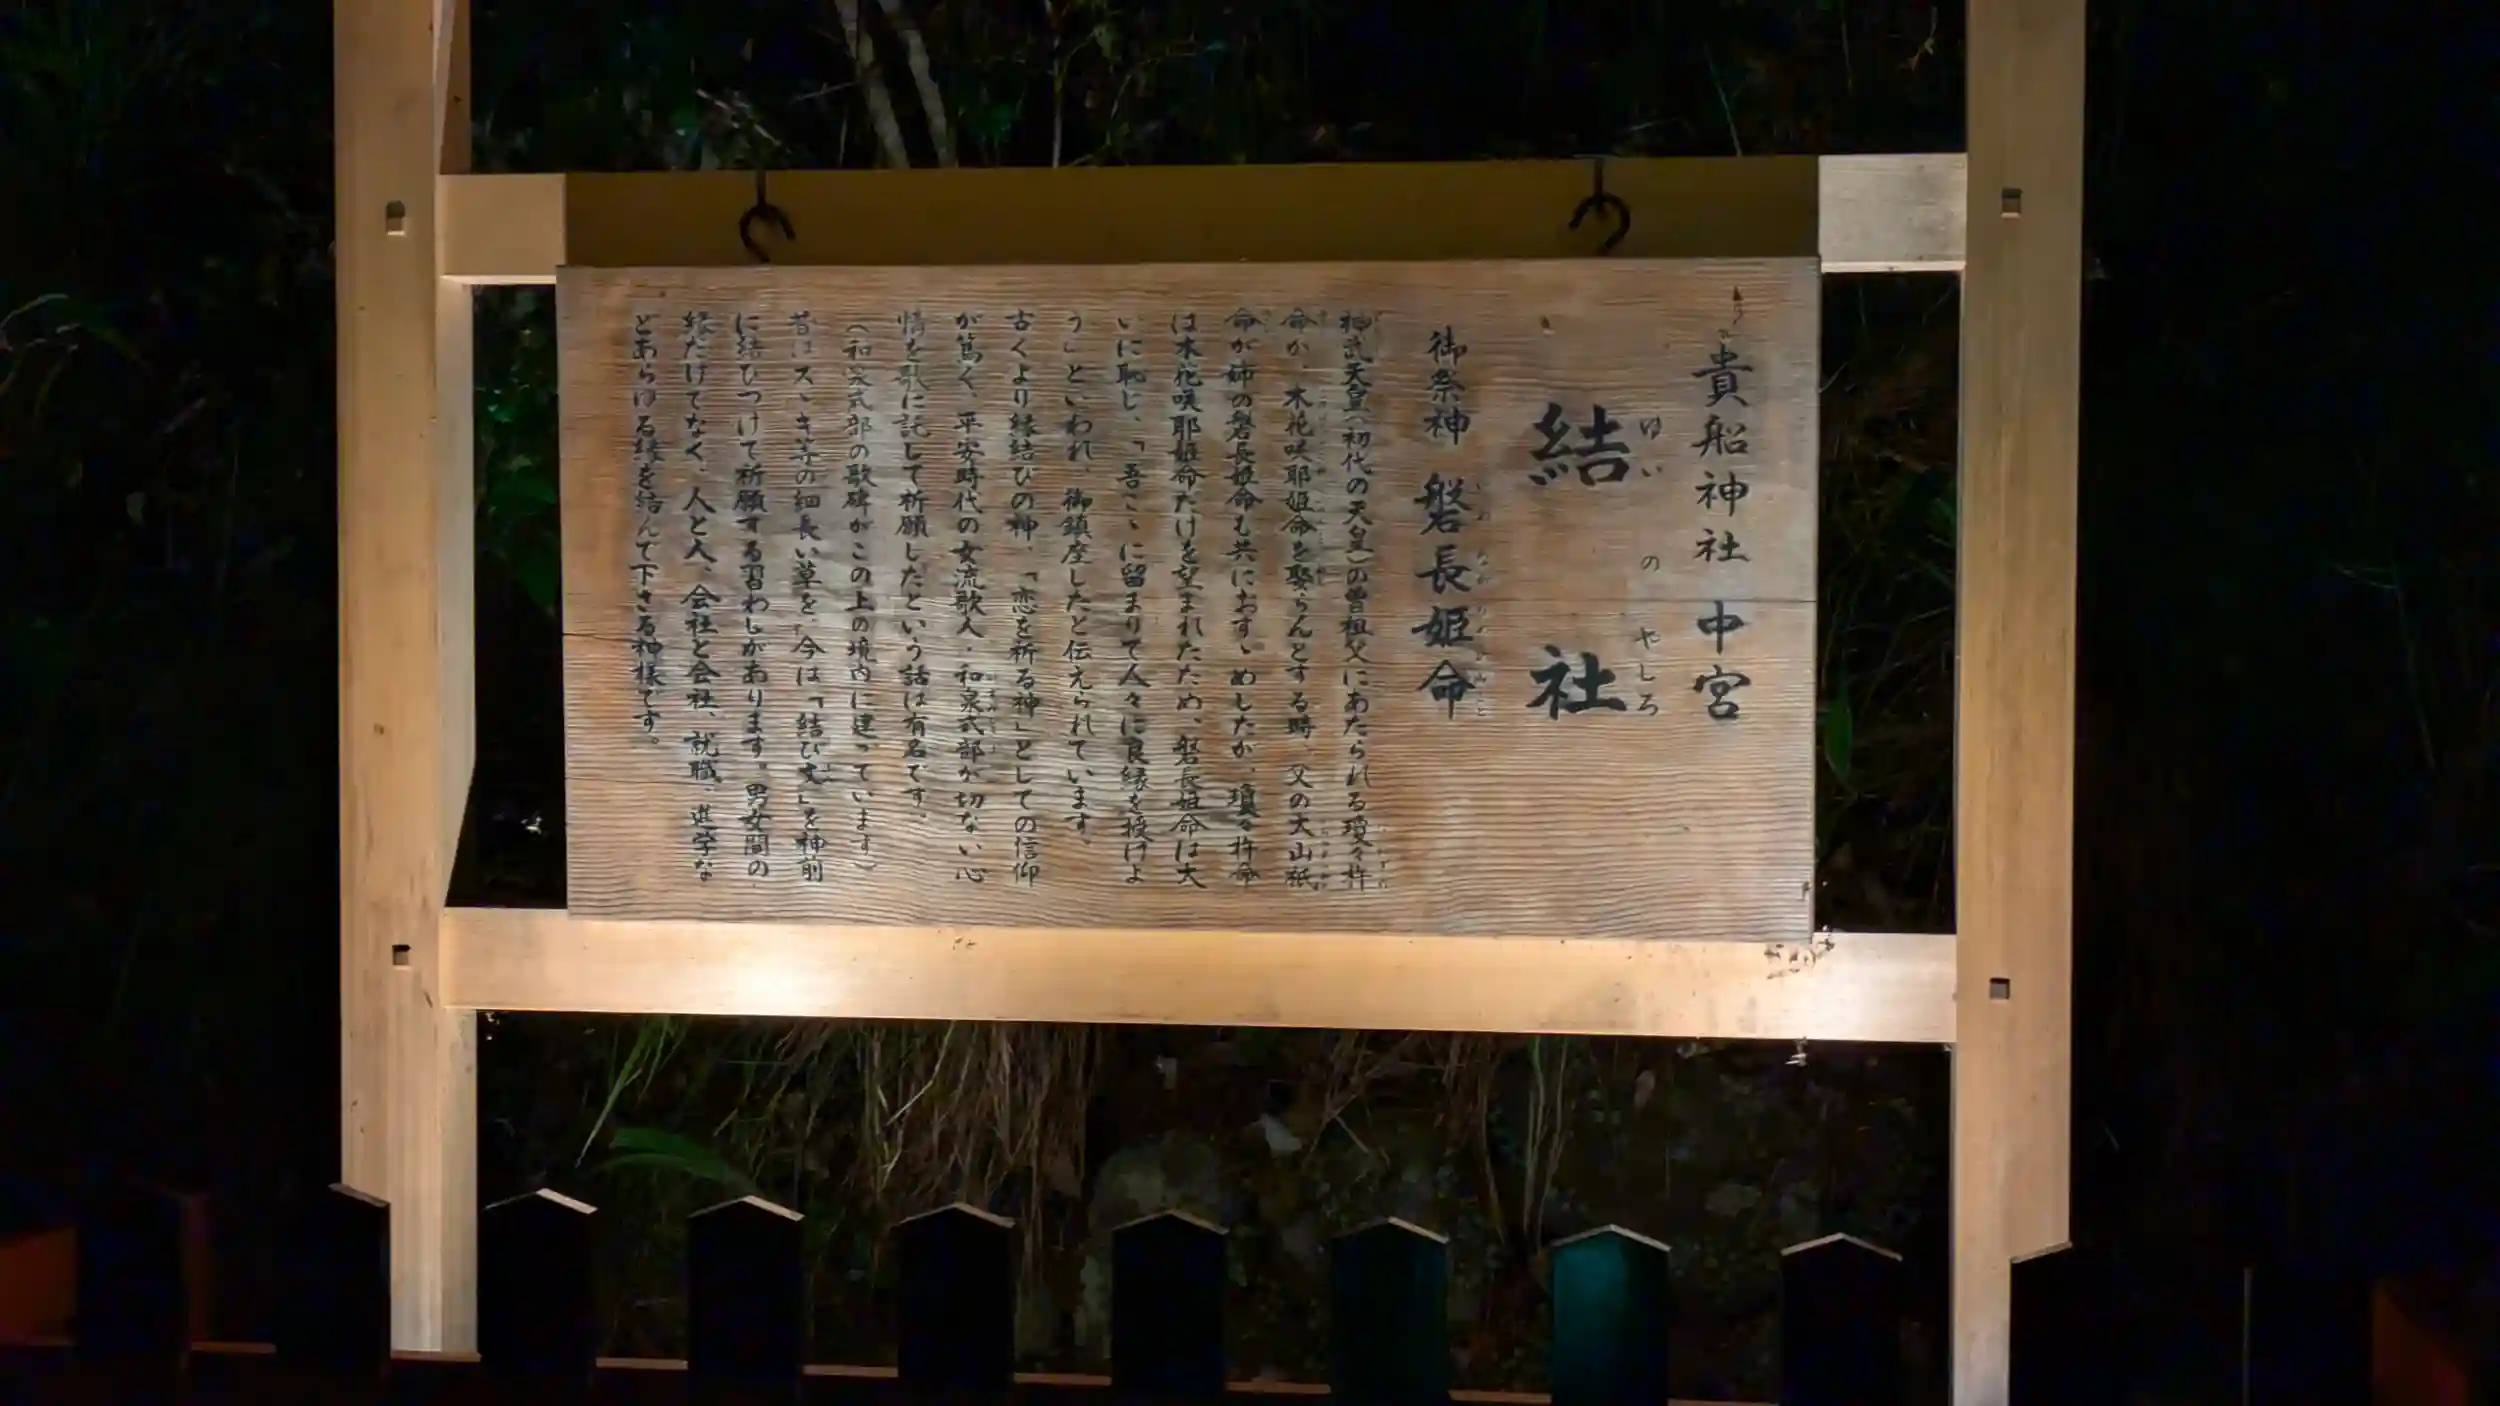 貴船神社 中宮
結社
ゆい の やしろ
御祭神 磐長姫命
神武天皇(初代の天皇)の曽祖父にあたられる瓊々杵
命が、木花咲耶姫命を娶らんとする時、父の大山祇
命が姉の磐長姫命も共におすゝめしたが、瓊々杵命
は木花咲耶姫命だけを望まれたため、磐長姫命は大
いに恥じ、「吾こゝに留まりて人々に良縁を授けよ
う」といわれ、御鎮座したと伝えられています。
古くより縁結びの神、「恋を祈る神」としての信仰
が篤く、平安時代の女流歌人・和泉式部が切ない心
情を歌に託して祈願したという話は有名です。
(和泉式部の歌碑がこの上の境内に建っています)
昔はスゝキ等の細長い草を、今は「結び文」を神前
に結びつけて祈願する習わしがあります。男女間の
縁だけでなく、人と人、会社と会社、就職、進学な
どあらゆる縁を結んで下さる神様です。